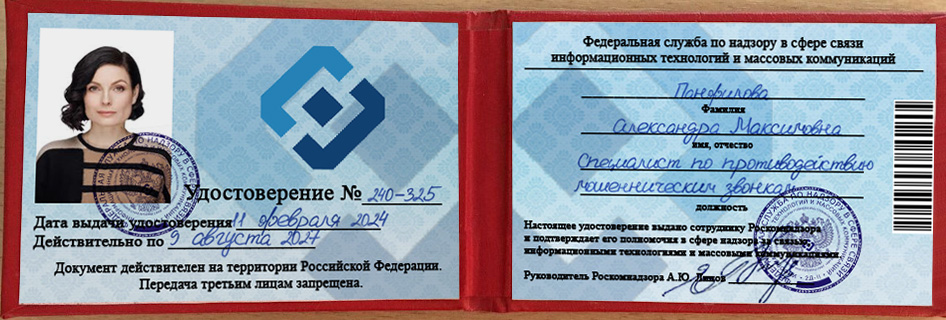 Удостоверение № 240-325
Дата выдачи удостоверения 11 февраля 2024
Действительно по 9 августа 2027
Документ действителен на территории Российской Федерации.
Передача третьим лицам запрещена.
Федеральная служба по надзору в сфере связи
информационных технологий и массовых коммуникаций
Панфилова
Фамилия
Александра Максимовна
имя, отчество
Специалист по противодействию
мошенническим звонкам
должность
Настоящее удостоверение выдано сотруднику Роскомнадзора
и подтверждает его полномочия в сфере надзора за связью,
информационными технологиями и массовыми коммуникациями
Руководитель Роскомнадзора А.Ю. Липов